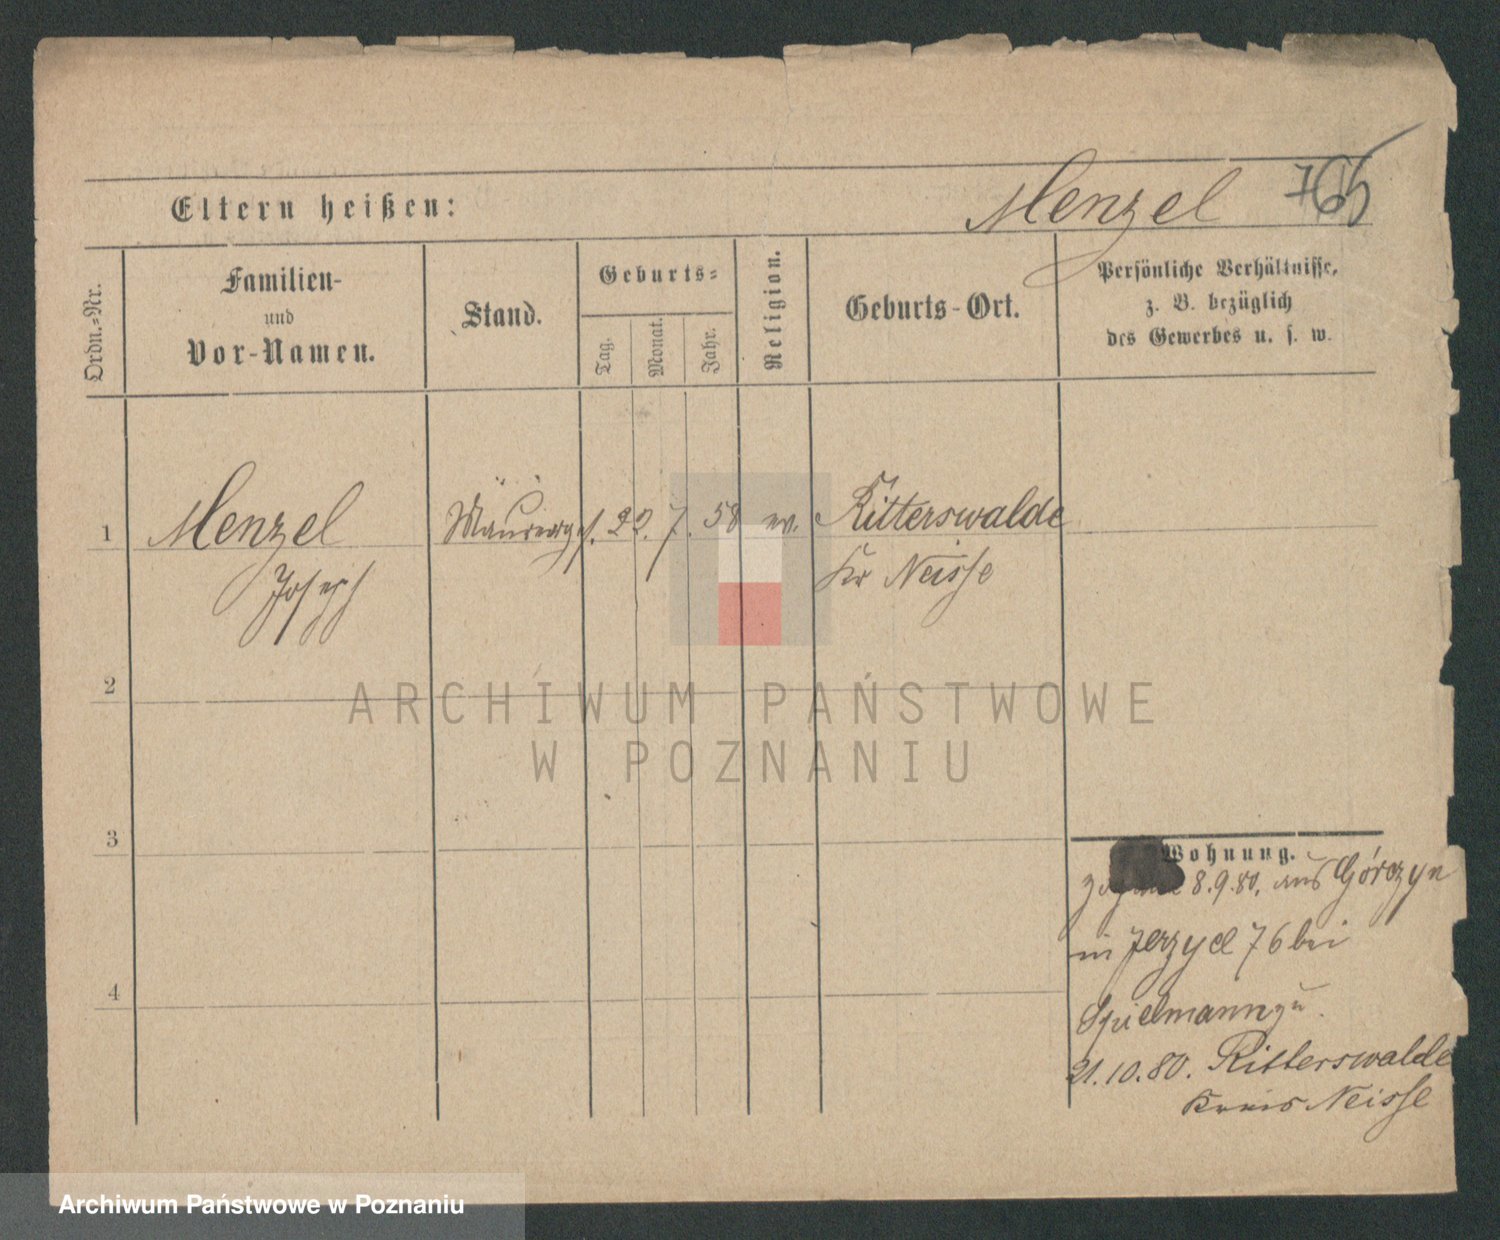 Menzel 765
Eltern heißen:
Ordn.-Nr.
Familien-
und
Vor-Namen.
Stand.
Geburts-
Tag.
Monat.
Jahr.
Religion.
Geburts-Ort.
Persönliche Verhältnisse,
z. B. bezüglich
des Gewerbes u. s. w.
1 Menzel Maurerges. 22. 7. 58 ev. Ritterswalde
Joseph Kr Neisse
2
ARCHIWUM PAŃSTWOWE
W POZNANIU
3
Wohnung.
8.9.80. aus Górczyn
in Jerzyce 76 bei
Spielmann zu
4
21.10.80. Ritterswalde
Kreis Neisse
Archiwum Państwowe w Poznaniu